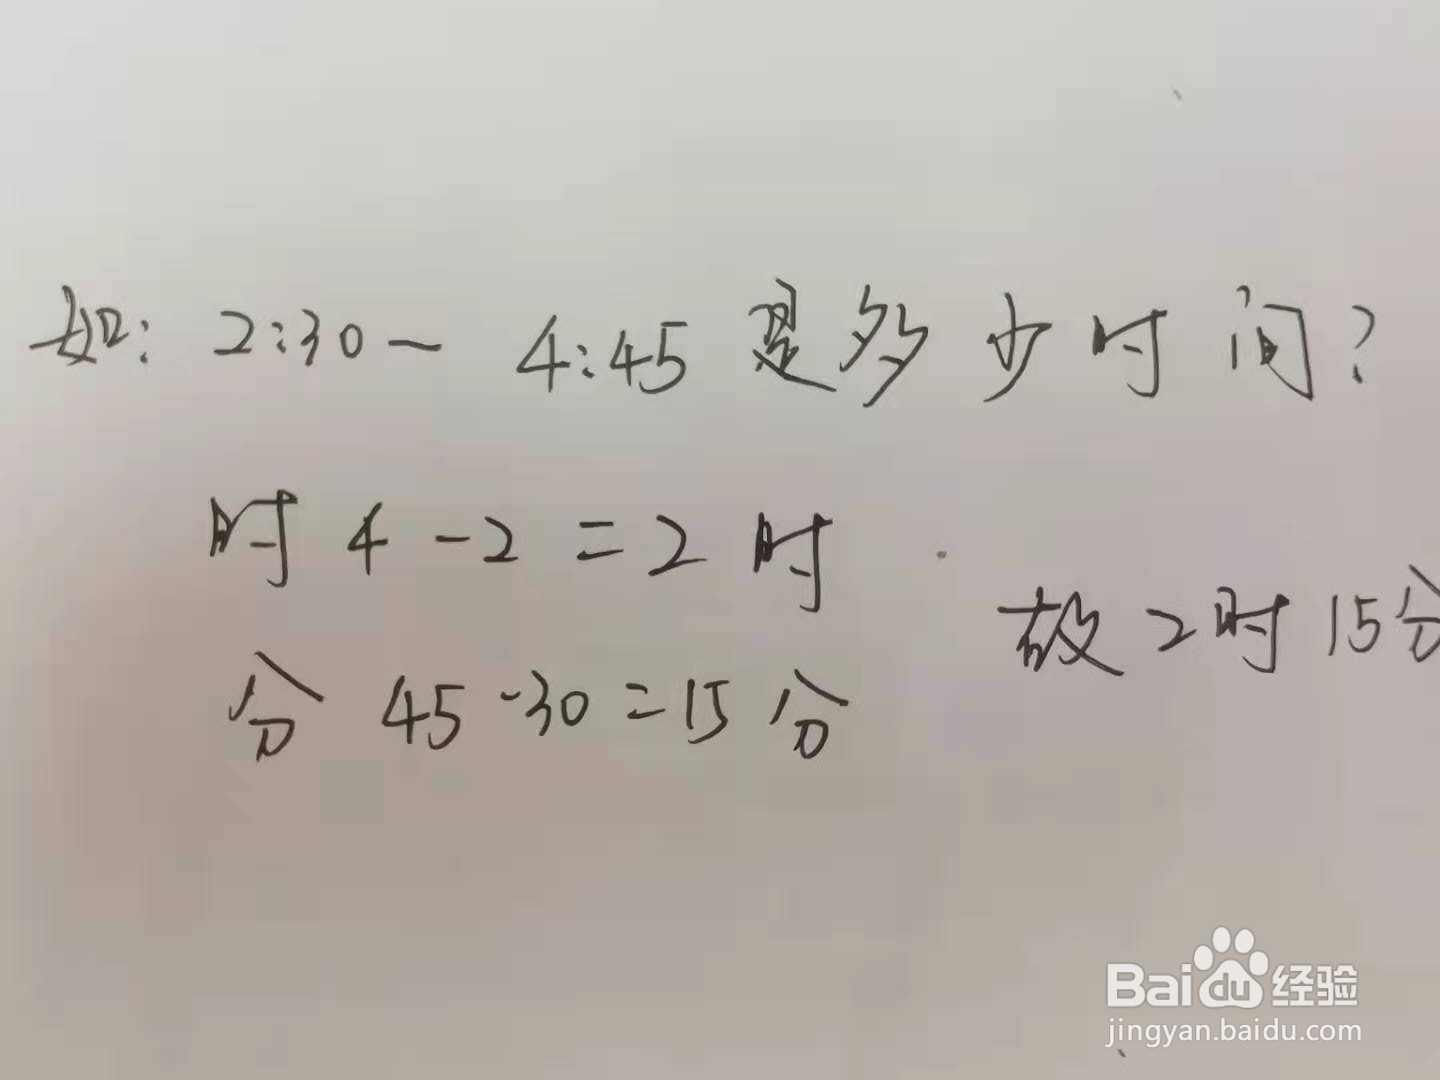 如: 2:30— 4:45是多少时间?
时 4-2=2时
故2时15分
分 45-30=15分
Baidu经验
jingyan.baidu.com